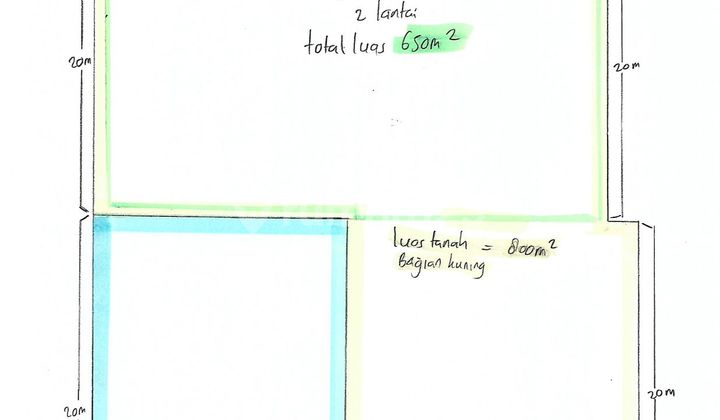 2 lantai
total luas 650m²
20m
20m
luas tanah = 800m²
Bagian kuning
20m
20m